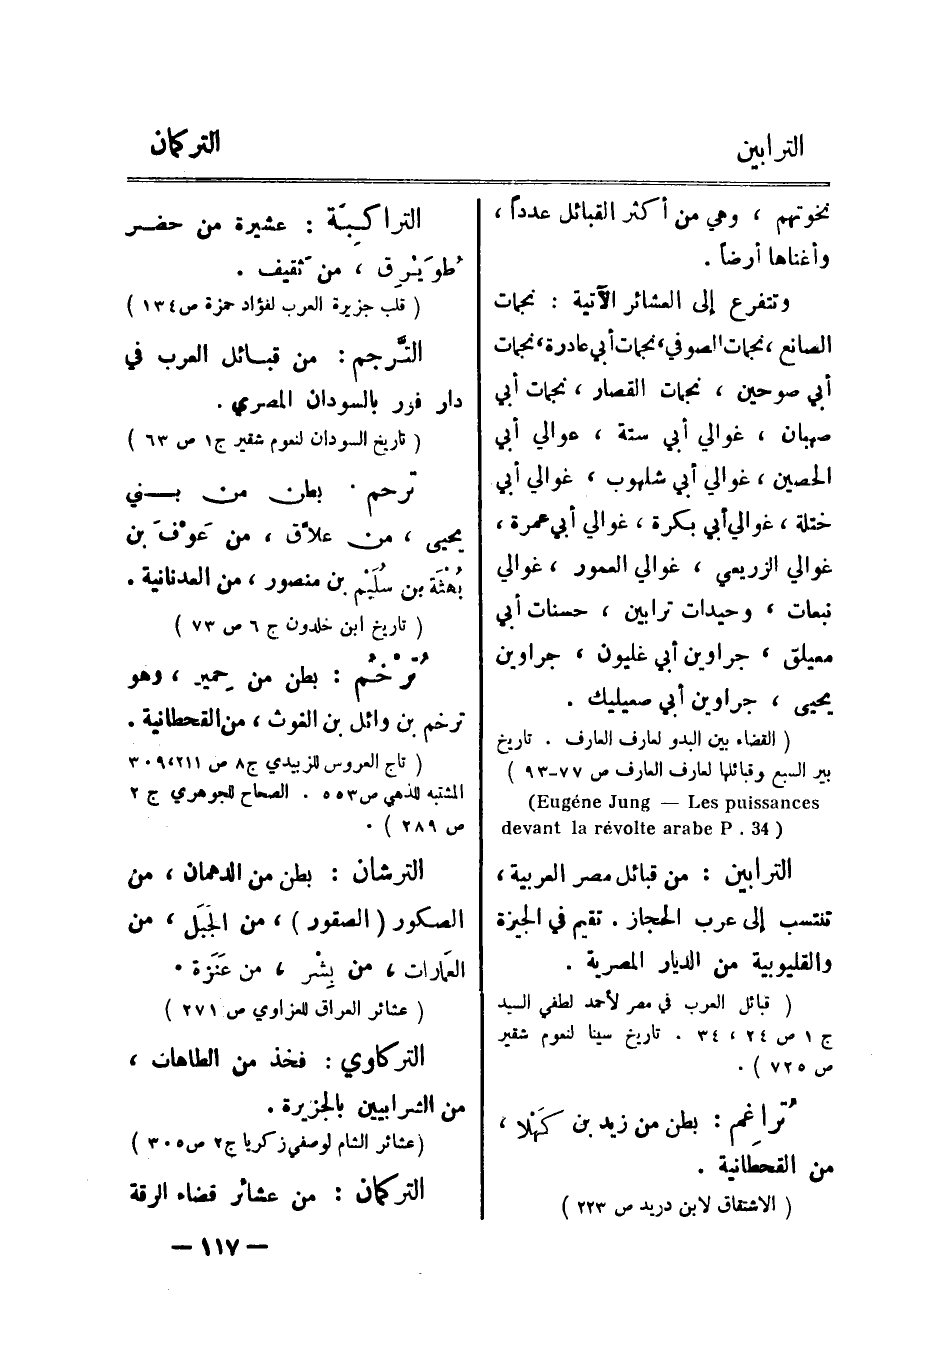 الترابين
التركمان
نخوتهم ، وهي من أكثر القبائل عدداً ،
وأغناها أرضاً .
وتتفرع إلى العشائر الآتية : نجمات
الصانع ، نجمات الصوفي ، نجمات أبي عادرة ، نجمات
أبي صوحين ، نجمات القصار ، نجمات أبي
صهبان ، غوالي أبي ستة ، عوالي أبي
الحصين ، غوالي أبي شلهوب ، غوالي أبي
ختلة ، غوالي أبي بكرة ، غوالي أبي عمرة ،
غوالي الزريعي ، غوالي العمور ، غوالي
نبعات ، وحيدات ترابين ، حسنات أبي
معيلق ، جراوين أبي غليون ، جراوين
يحيى ، جراوين أبي صعيليك .
( القضاء بين البدو لعارف العارف . تاريخ
بير السبع وقبائلها لعارف العارف ص ٧٧-٩٣ )
(Eugéne Jung — Les puissances
devant la révolte arabe P . 34 )
الترابين : من قبائل مصر العربية ،
تنتسب إلى عرب الحجاز . تقيم في الجيزة
والقليوبية من الديار المصرية .
( قبائل العرب في مصر لأحمد لطفي السيد
ج ١ ص ٢٤ ، ٣٤ . تاريخ سينا لنعوم شقير
ص ٧٢٥ ) .
تُراغِم : بطن من زيد بن كَهْلا ،
من القحطانية .
( الاشتقاق لابن دريد ص ٢٢٣ )
التراكِبَة : عشيرة من حضر
ُطوَيْرِق ، من َثقيف .
( قلب جزيرة العرب لفؤاد حمزة ص ١٣٤ )
التَّرجم : من قبائل العرب في
دار فور بالسودان المصري .
( تاريخ السودان لنعوم شقير ج١ ص ٦٣ )
ترحم . بطن من بني
يحيى ، من علاّق ، من عَوْف بن
بُهْثَة بن سُلَيْم بن منصور ، من العدنانية .
( تاريخ ابن خلدون ج ٦ ص ٧٣ )
تُرْخُمُ : بطن من حِمير ، وهو
ترخم بن وائل بن الغوث ، من القحطانية .
( تاج العروس للزبيدي ج٨ ص ٢١١ ، ٣٠٩
المشتبه للذهبي ص ٥٥٣ . الصحاح للجوهري ج ٢
ص ٢٨٩ ) .
الترشان : بطن من الدهمان ، من
الصكور ( الصقور ) ، من الجَبَل ، من
العَمارات ، من بِشْر ، من عَنَزَة .
( عشائر العراق للعزاوي ص ٢٧١ )
التركاوي : فخذ من الطاهات ،
من الشرابيين بالجزيرة .
( عشائر الشام لوصفي زكريا ج٢ ص ٣٠٥ )
التركمان : من عشائر قضاء الرقة
— ١١٧ —